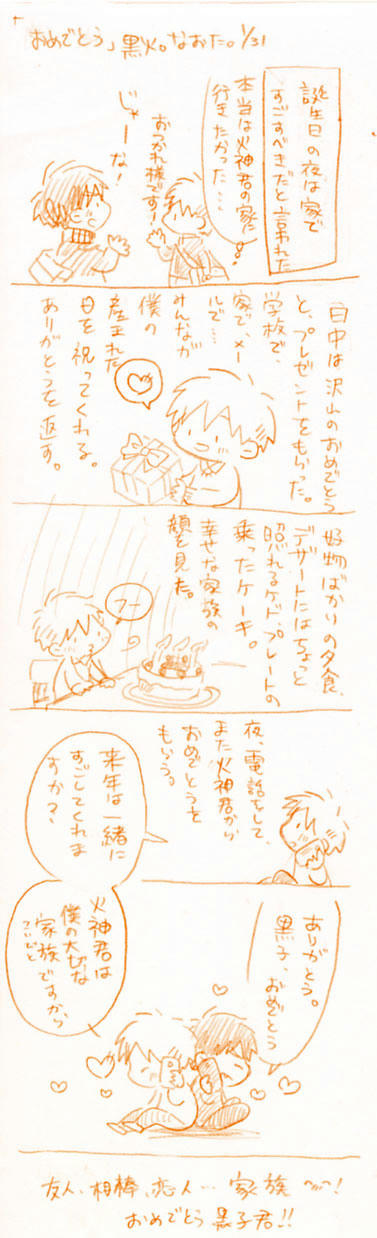 「おめでとう」黒火。なおた。1/31
誕生日の夜は家で
すごすべきだと言われた
本当は火神君の家に
行きたかった…
おつかれ様です!
じゃーな!
日中は沢山のおめでとう
と、プレゼントをもらった。
学校で、
家で、メー
ルで…
みんなが
僕の
産まれた
日を祝ってくれる。
ありがとうを返す。
好物ばかりの夕食、
デザートにはちょっと
照れるケド、プレートの
乗ったケーキ。
幸せな家族の
顔を見た。
フー
夜、電話をして、
また火神君から
おめでとうを
もらう。
来年は一緒に
すごしてくれま
すか?
ありがとう。
黒子、おめでとう
火神君は
僕の大切な
家族ですから
友人、相棒、恋人…家族〜!
おめでとう黒子君!!